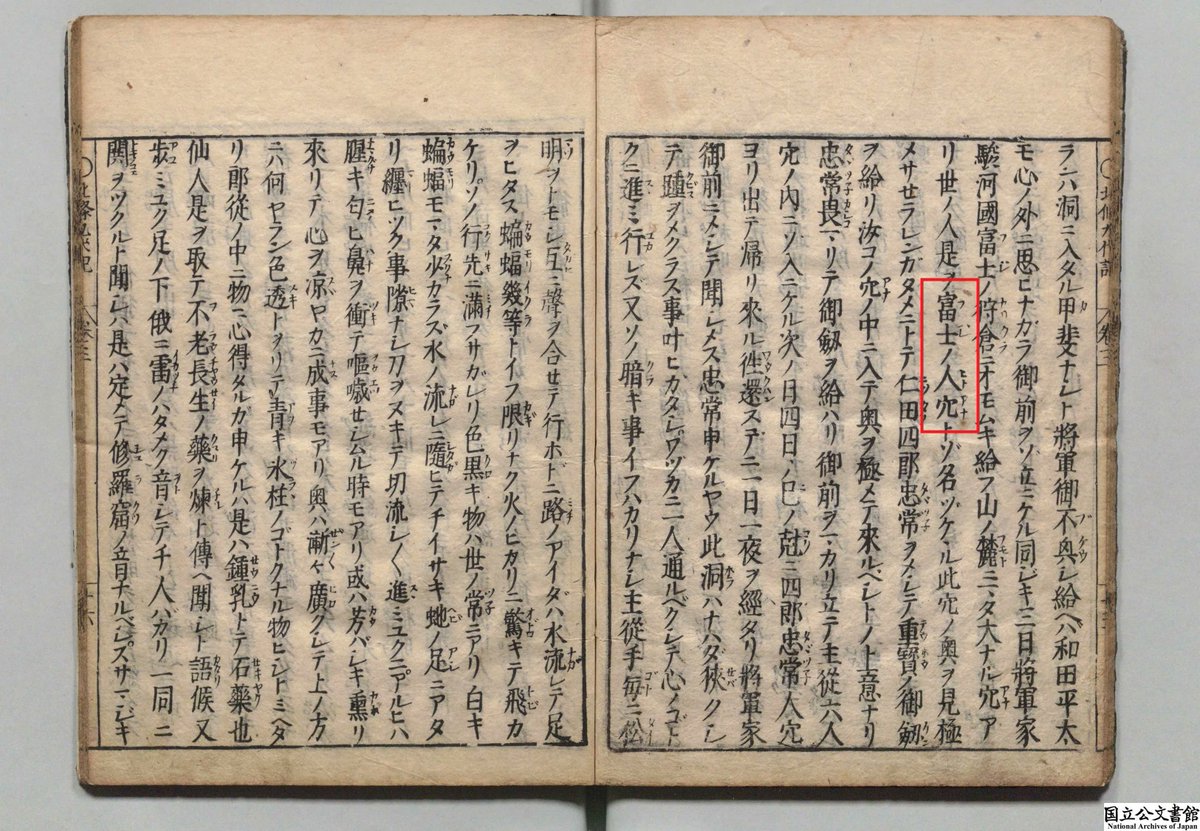 ラ六洞ニ入タル甲斐ナシト將軍御不興シ給ヘバ和田平太
モ心ノ外ニ思ヒナカラ御前ヲゾ立ニケル同シキ三日將軍家
駿河國富士ノ狩倉ニオモムキ給フ山ノ麓ニ又大ナル穴ア
リ世ノ人是ヲ富士ノ人穴トゾ名ヅケケル此穴ノ奥ヲ見極
メサセラレンガタメニトテ仁田四郎忠常ヲメシテ重寳ノ御劔
ヲ給リ汝コノ穴ノ中ニ入テ奥ヲ極メテ來ルベシトノ上意ナリ
忠常畏マリテ御劔ヲ給ハリ御前ヲマカリ立テ主從六人
穴ノ内ニゾ入ニケル次ノ日四日ノ巳ノ尅ニ四郎忠常人穴
ヨリ出テ帰リ來ル徃還スデニ一日一夜ヲ經タリ將軍家
御前ニメシテ聞シメス忠常申ケルヤウ此洞ハナハダ狹クシ
テ踵ヲメクラス事叶ヒガタシワヅカニ一人通ルベクシテ心ノゴト
クニ進ミ行レズ又ソノ暗キ事イフハカリナシ主從手毎ニ松
明ヲトモシ互ニ聲ヲ合セテ行ホドニ路ノアイダハ水流レテ足
ヲヒタス蝙蝠幾等トイフ限リナク火ノヒカリニ驚キテ飛カ
ケリソノ行先ニ滿フサガレリ色黒キ物ハ世ノ常ニアリ白キ
蝙蝠モマタ少カラズ水ノ流レニ隨ヒテチイサキ虵ノ足ニアタ
リ纏ヒツク事隙ナシ刀ヲヌキテ切流シ〱進ミユクニアルヒハ
腥キ匂ヒ鼻ヲ衝テ嘔噦セシムル時モアリ或ハ芳バシキ熏リ
來リテ心ヲ凉ヤカニ成事モアリ奥ハ漸々廣クシテ上ノ方
ニハ何ヤラン色透トヲリテ青キ氷柱ノゴトクナル物ヒシトミヘタ
リ郎從ノ中ニ物ニ心得タルガ申ケルハ是ハ鍾乳トテ石藥也
仙人是ヲ取テ不老長生ノ藥ヲ煉ト傳ヘ聞シト語候又
歩ミユク足ノ下俄ニ雷ノハタメク音シテ千人バカリ一同ニ
閧ヲツクルト聞シハ是ハ定メテ修羅窟ノ音ナルベシズサマジキ
国立公文書館
National Archives of Japan